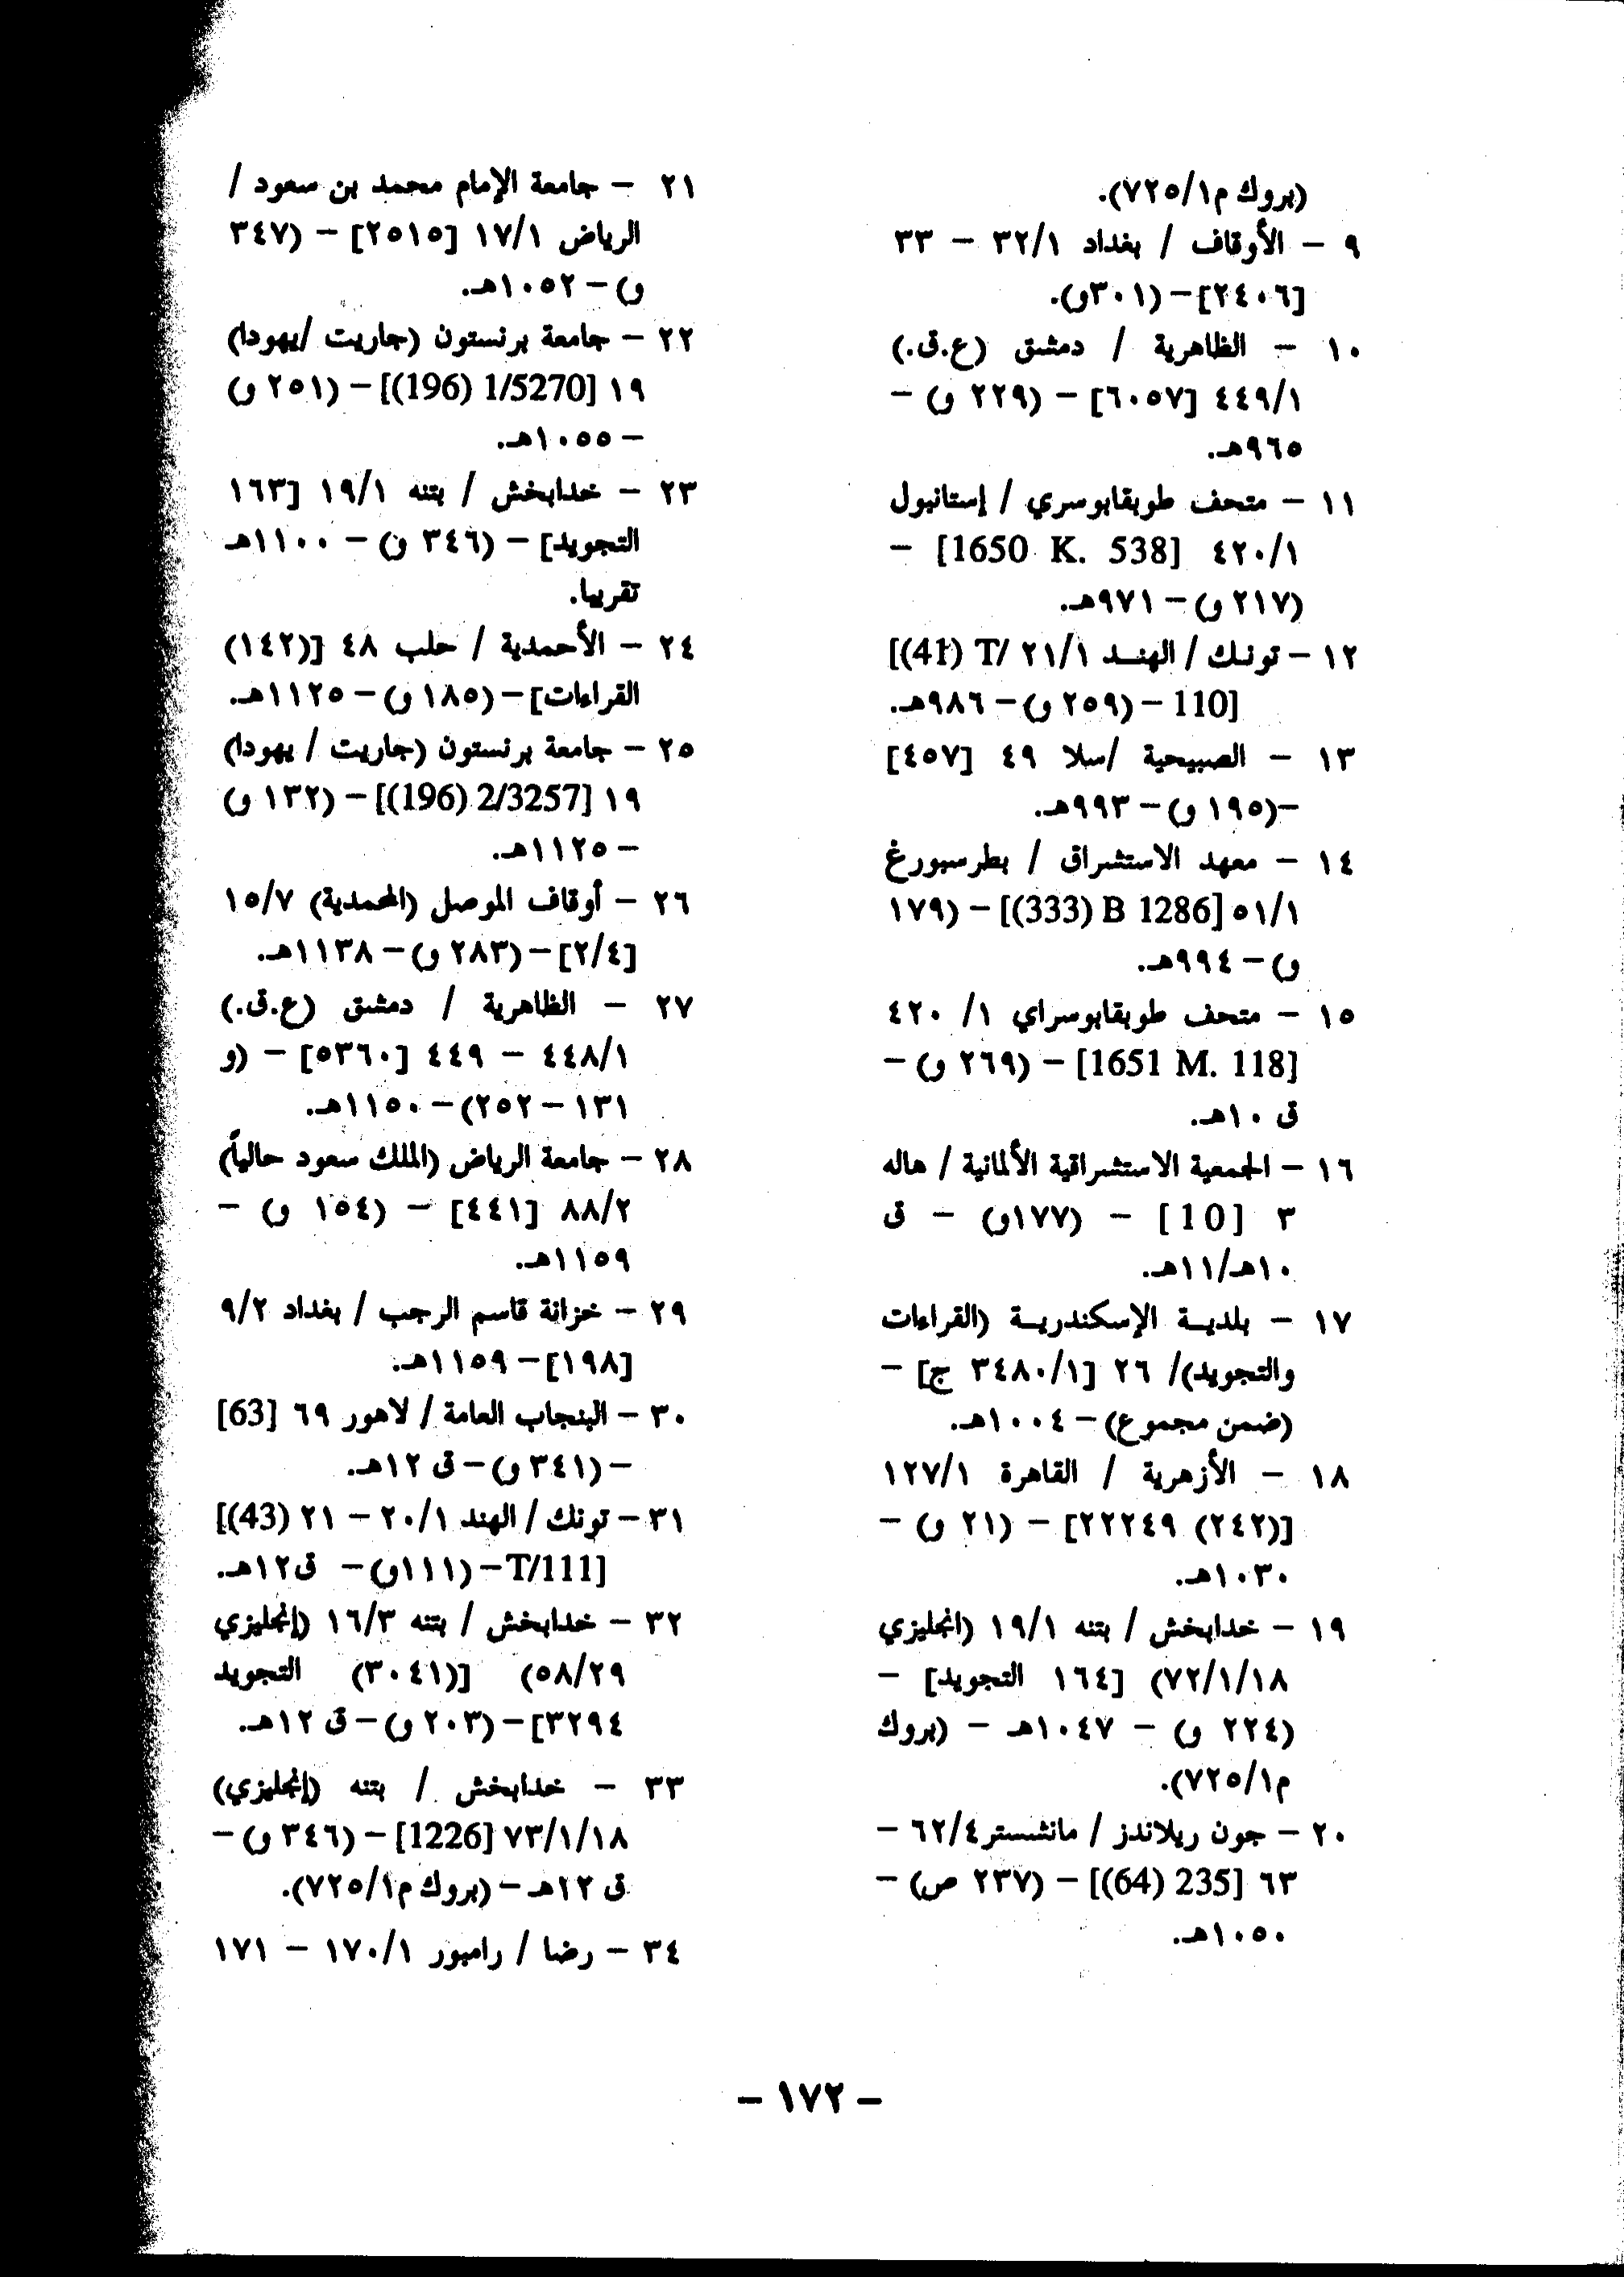 (بروك م٧٢٥/١).
٩ – الأوقاف / بغداد ٣٢/١ – ٣٣
[٢٤٠٦]– (٣٠١و).
١٠ – الظاهرية / دمشق (ع.ق.)
٤٤٩/١ [٦٠٥٧] – (٢٢٩ و) –
٩٦٥هـ.
١١ – متحف طوبقابوسري / إستانبول
٤٢٠/١ [1650 K. 538] –
(٢١٧ و) – ٩٧١هـ.
١٢ – تونك / الهند ٢١/١ T/ (41)]
[110 – (٢٥٩ و) – ٩٨٦هـ.
١٣ – الصبيحية /سلا ٤٩ [٤٥٧]
–(١٩٥ و) – ٩٩٣هـ.
١٤ – معهد الاستشراق / بطرسبورغ
٥١/١ [(333) B 1286] – (١٧٩
و) – ٩٩٤هـ.
١٥ – متحف طوبقابوسراي ١/ ٤٢٠
[1651 M. 118] – (٢٦٩ و) –
ق ١٠هـ.
١٦ – الجمعية الاستشراقية الألمانية / هاله
٣ [10] – (١٧٧و) – ق
١٠هـ/١١هـ.
١٧ – بلدية الإسكندرية (القراءات
والتجويد)/ ٢٦ [٣٤٨٠/١ ج] –
(ضمن مجموع) – ١٠٠٤هـ.
١٨ – الأزهرية / القاهرة ١٢٧/١
[(٢٤٢) ٢٢٢٤٩] – (٢١ و) –
١٠٣٠هـ.
١٩ – خدابخش / بتنه ١٩/١ (انجليزي
٧٢/١/١٨) [١٦٤ التجويد] –
(٢٢٤ و) – ١٠٤٧هـ – (بروك
م٧٢٥/١).
٢٠ – جون ريلاندز / مانشستر٦٢/٤ –
٦٣ [(64) 235] – (٢٣٧ ص) –
١٠٥٠هـ.
٢١ – جامعة الإمام محمد بن سعود /
الرياض ١٧/١ [٢٥١٥] – (٣٤٧
و) – ١٠٥٢هـ.
٢٢ – جامعة برنستون (جاريت /يهودا)
١٩ [(196) 1/5270] – (٢٥١ و)
– ١٠٥٥هـ.
٢٣ – خدابخش / بتنه ١٩/١ [١٦٣
التجويد] – (٣٤٦ ن) – ١١٠٠هـ
تقريبا.
٢٤ – الأحمدية / حلب ٤٨ [(١٤٢)
القراءات] – (١٨٥ و) – ١١٢٥هـ.
٢٥ – جامعة برنستون (جاريت / يهودا)
١٩ [(196) 2/3257] – (١٣٢ و)
– ١١٢٥هـ.
٢٦ – أوقاف الموصل (المحمدية) ١٥/٧
[٢/٤] – (٢٨٣ و) – ١١٣٨هـ.
٢٧ – الظاهرية / دمشق (ع.ق.)
٤٤٨/١ – ٤٤٩ [٥٣٦٠] – (و
١٣١ – ٢٥٢) – ١١٥٠هـ.
٢٨ – جامعة الرياض (الملك سعود حالياً)
٨٨/٢ [٤٤١] – (١٥٤ و) –
١١٥٩هـ.
٢٩ – خزانة قاسم الرجب / بغداد ٩/٢
[١٩٨] – ١١٥٩هـ.
٣٠ – البنجاب العامة / لاهور ٦٩ [63]
– (٣٤١ و) – ق ١٢هـ.
٣١ – تونك / الهند ٢٠/١ – ٢١ (43)]
[T/111 – (١١١و) – ق١٢هـ.
٣٢ – خدابخش / بتنه ١٦/٣ (إنجليزي
٥٨/٢٩) [(٣٠٤١) التجويد
٣٢٩٤] – (٢٠٣ و) – ق ١٢هـ.
٣٣ – خدابخش / بتنه (إنجليزي)
٧٣/١/١٨ [1226] – (٣٤٦ و) –
ق ١٢هـ – (بروك م٧٢٥/١).
٣٤ – رضا / رامبور ١٧٠/١ – ١٧١
– ١٧٢ –